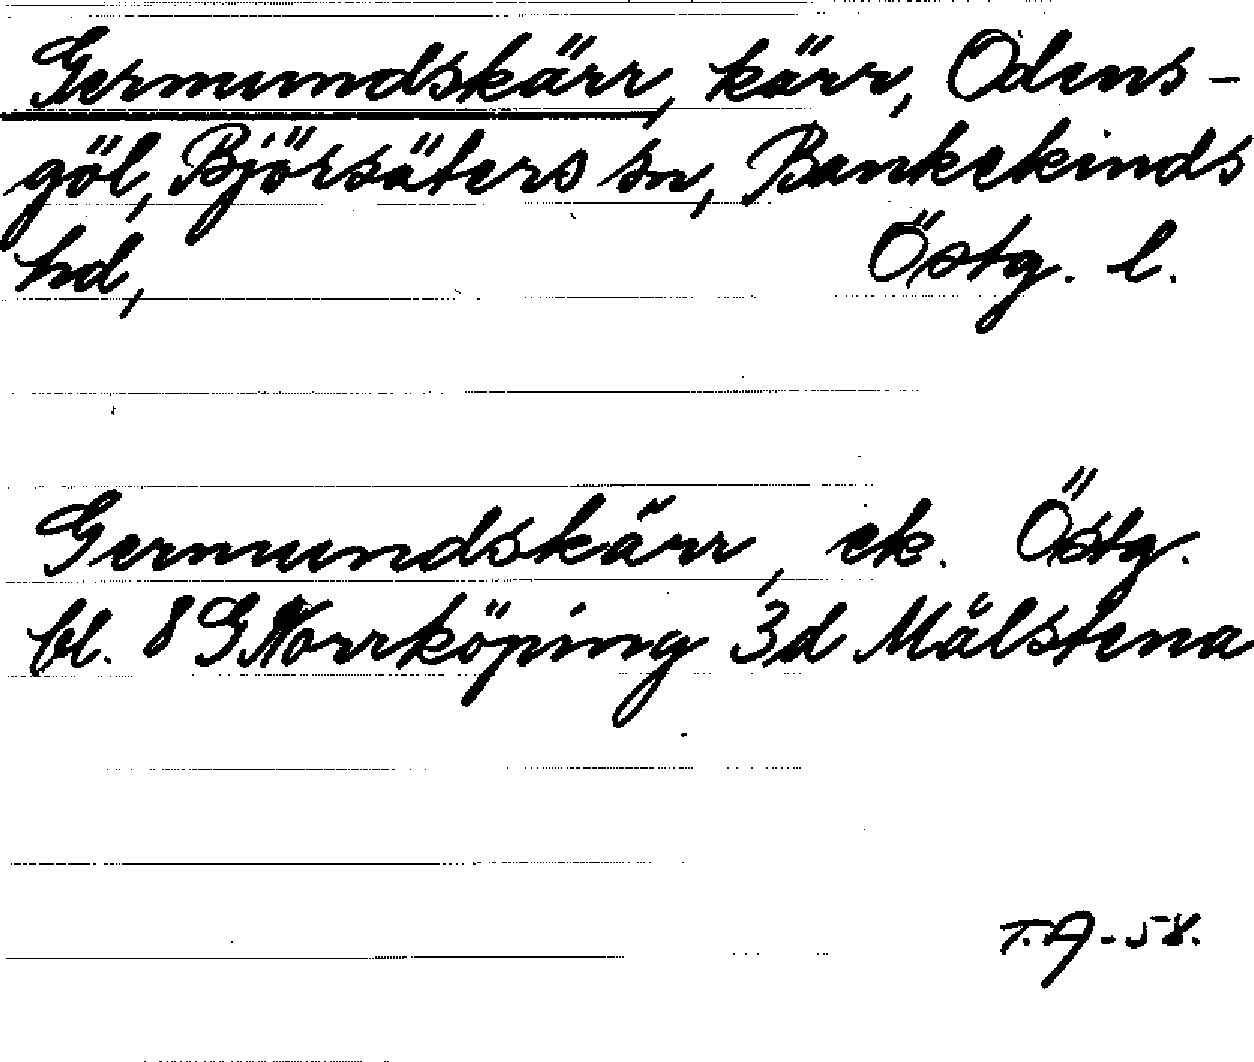 Germundskärr, kärr, Odens-
göl, Björsäters sn, Bankekinds
hd, Östg. l.
Germundskärr, ek. Östg.
bl. 8 G Norrköping 3d Målstena
T.A-58.